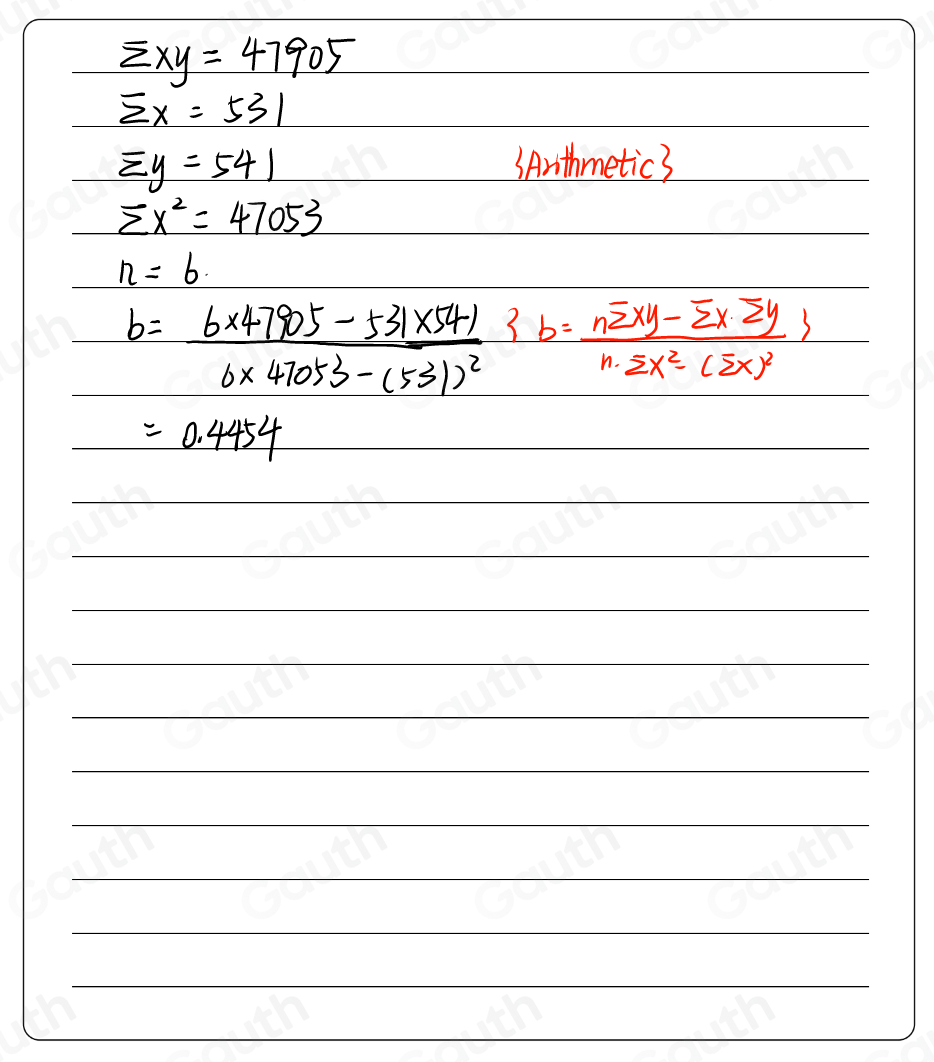 Σxy = 47905
Σx = 531
Σy = 541 {Arithmetic}
Σx² = 47053
n = 6.
b = (6×47905 - 531×541) / (6×47053 - (531)²) { b = (nΣxy - Σx·Σy) / (n·Σx² - (Σx)²) }
= 0.4454
Gauth